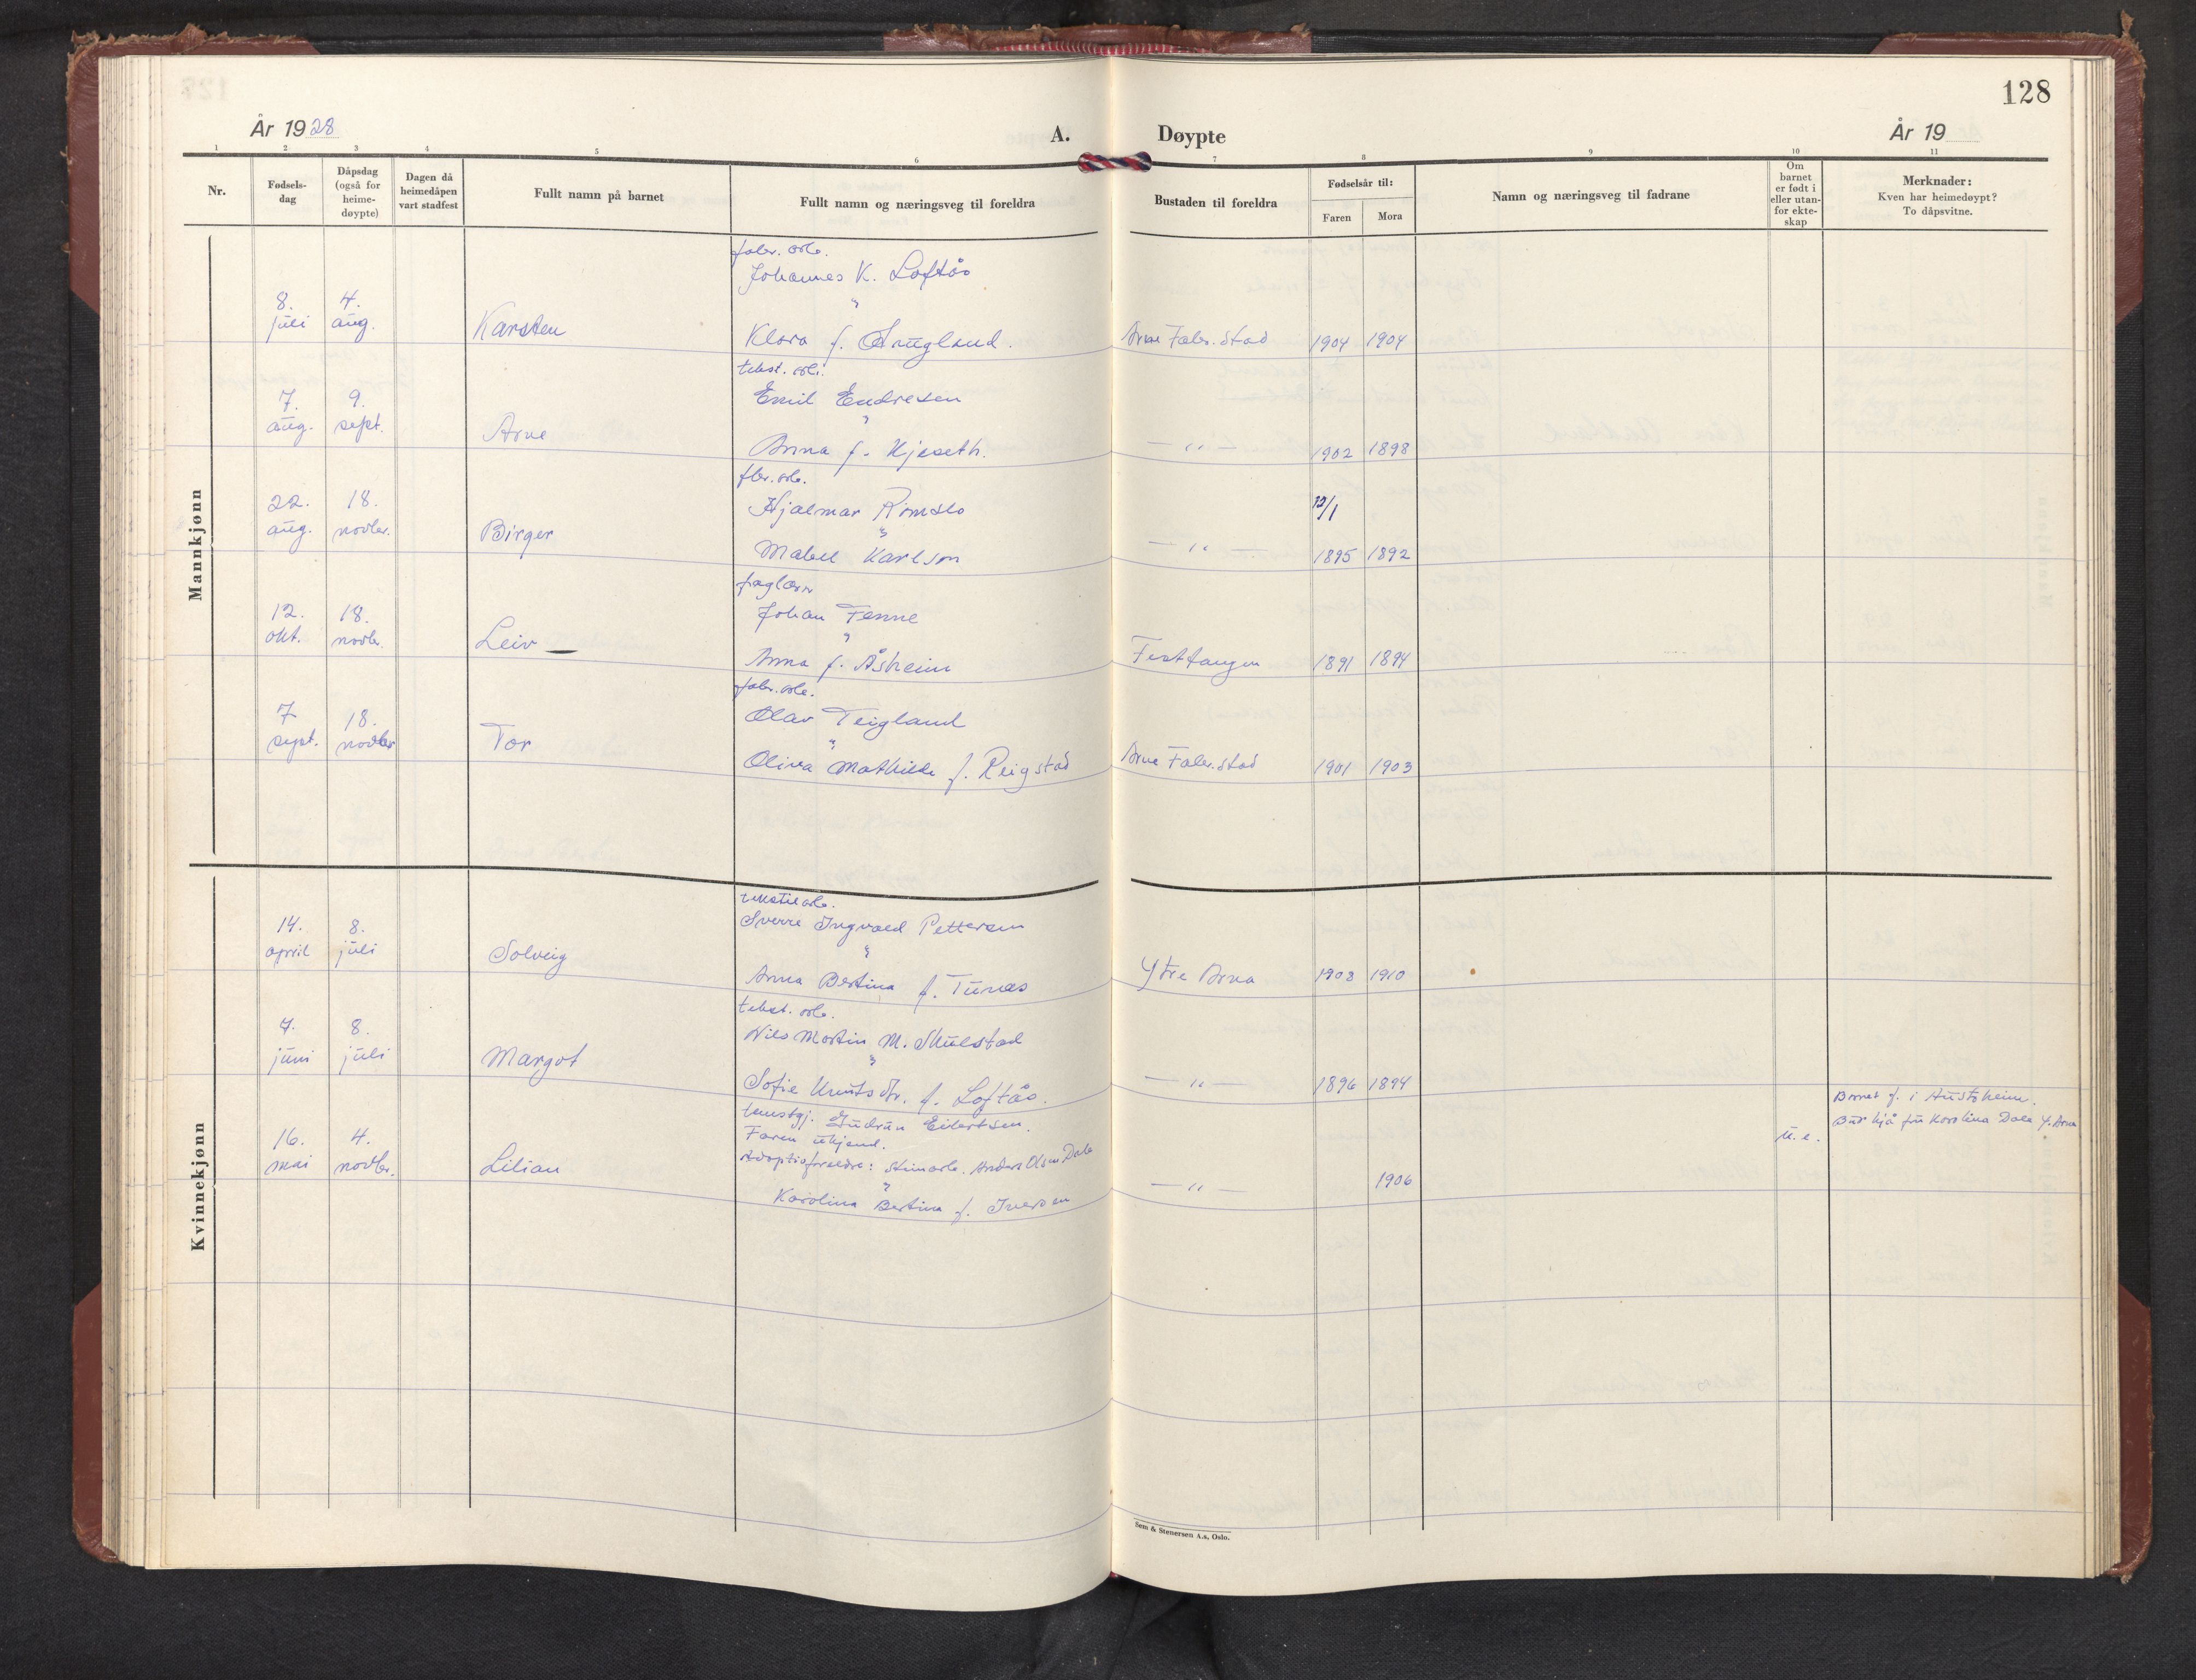 128
År 1928
A.
Døypte
År 19
1 2 3 4 5 6 7 8 9 10 11
Nr.
Fødsels-
dag
Dåpsdag
(også for
heime-
døypte)
Dagen då
heimedåpen
vart stadfest
Fullt namn på barnet
Fullt namn og næringsveg til foreldra
Bustaden til foreldra
Fødselsår til:
Faren
Mora
Namn og næringsveg til fadrane
Om
barnet
er født i
eller utan-
for ekte-
skap
Merknader:
Kven har heimedøypt?
To dåpsvitne.
Mannkjønn
fabr. arb.
Johannes K. Loftås
"
8. 4.
juli aug. Karsten
Klara f. Arne Fabr. stad 1904 1904
tekst. arb.
Emil Endresen
"
7. 9.
aug. sept. Arne
Anna f. Kjeseth. — " — 1902 1898
fbr. arb.
Hjalmar Romslo
"
22. 18.
aug. novbr. Birger
Mabel Karlson — " — 1895 1892
faglærar
Johan Fenne
"
12. 18.
okt. novbr. Leiv —
Anna f. Åsheim Festtangen 1891 1894
fabr. arb.
Olav Teigland
"
7 18.
sept. novbr Tor
Oliva Mathilde f. Reigstad Arne Fabr. stad 1901 1903
Kvinnekjønn
tekstilarb.
Sverre Ingvald Pettersen
"
14. 8.
april juli Solveig
Anna Bertina f. Tunes Ytre Arna 1908 1910
tekst. arb.
Nils Martin M. Skulstad
"
7. 8.
juni juli Margot
Sofie Knutsdtr. f. Loftås. — " — 1896 1894
tenestgj. Gudrun Eilertsen.
Faren ukjend.
Adoptivforeldre: Anders Olsen Dale
"
Karolina Bertina f. Iversen
16. 4.
mai novbr. Lilian — " 1906
u.e.
Barnet f. i Austrheim.
Bur hjå fru Karolina Dale Y. Arna
Sem & Stenersen A.s, Oslo.